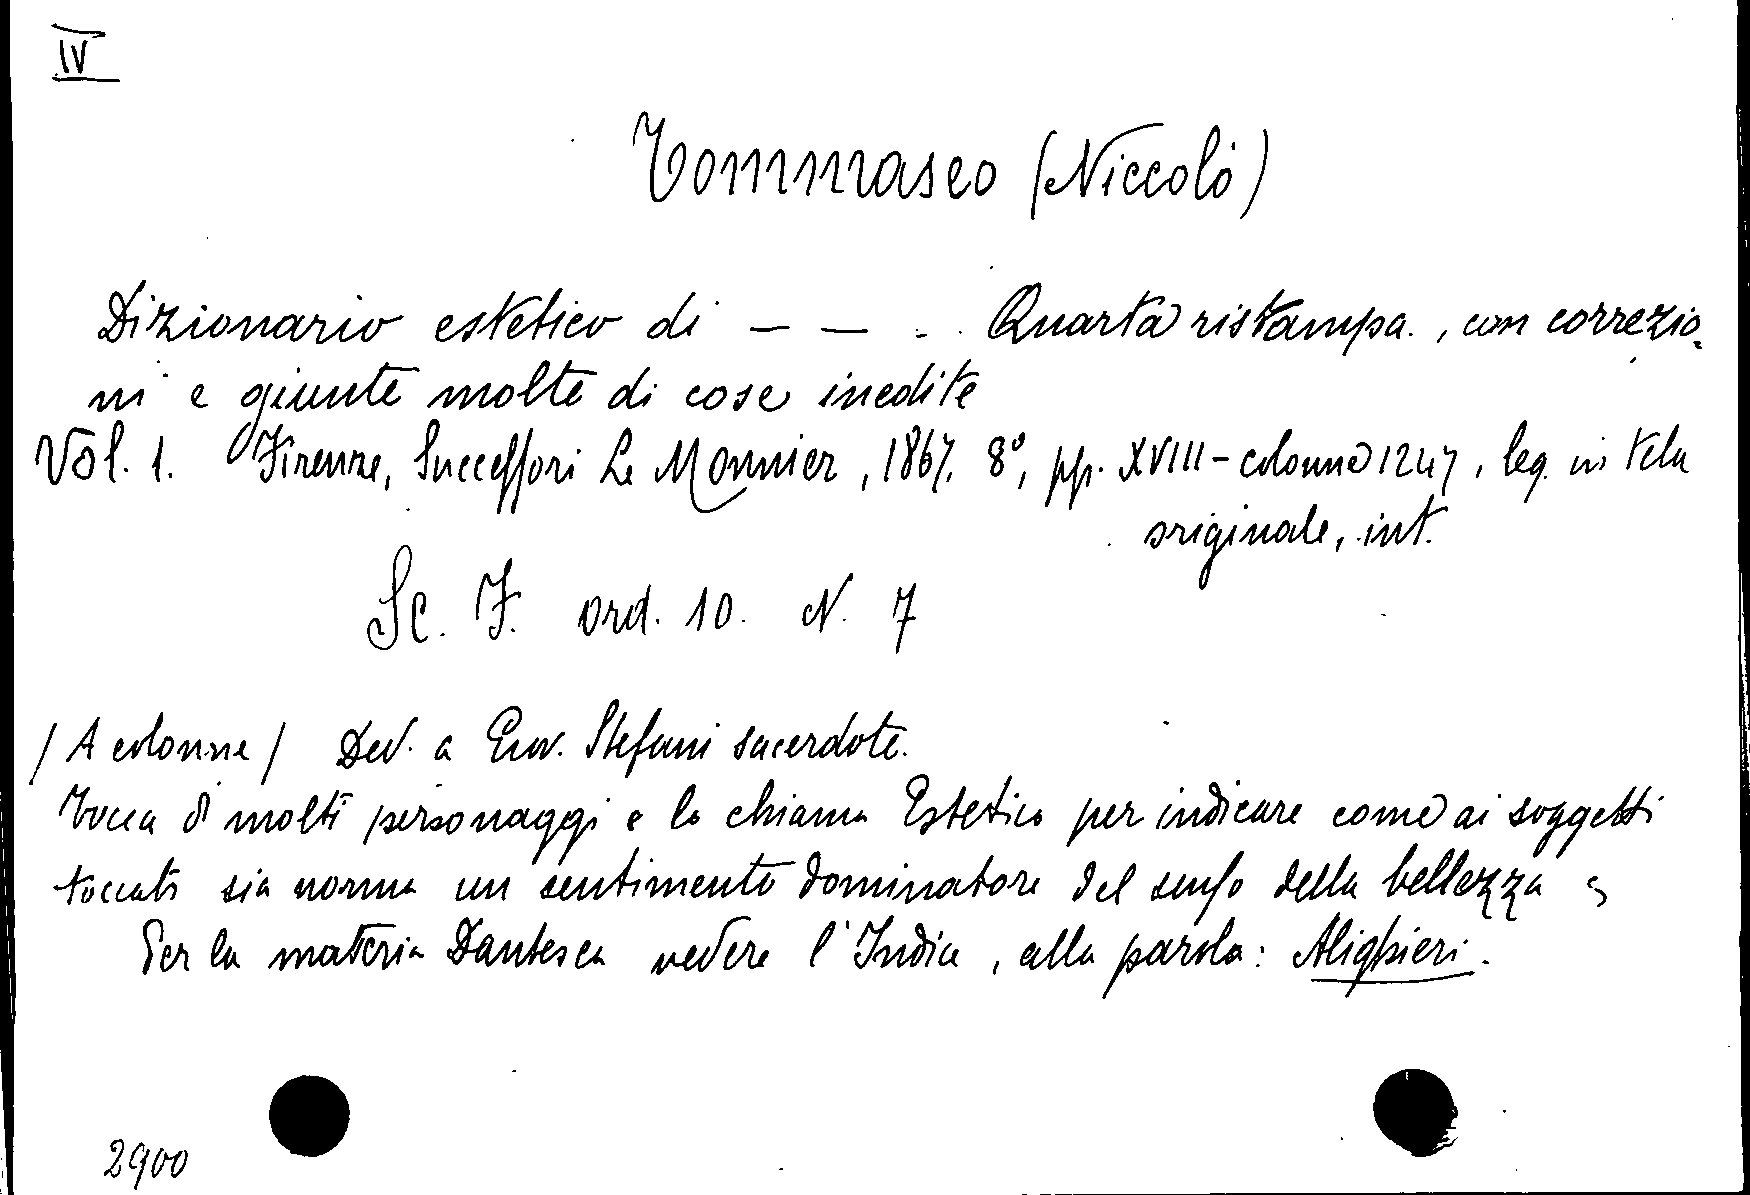 IV
Tommaseo (Niccolò)
Dizionario estetico di — — . Quarta ristampa., con correzio-
ni e giunte molte di cose inedite
Vol. 1. Firenze, Successori Le Monnier, 1867. 8°, pp. XVIII - colonne 1247, leg. in tela
originale, int.
Sc. F. ord. 10. N. 7
/ A colonne / Ded. a Stefani sacerdote.
Tocca di molti personaggi e lo chiama Estetico per indicare come ai soggetti
toccati sia norma un sentimento dominatore del senso della bellezza
Per la materia Dantesca vedere l'Indice, alla parola: Alighieri.
2900